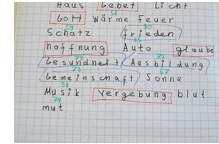 Haus Gebet Licht
Gott Wärme Feuer
Schatz Frieden
Hoffnung Auto glaube
Gesundheit Ausbildung
Gemeinschaft Sonne
Musik Vergebung blut
mut